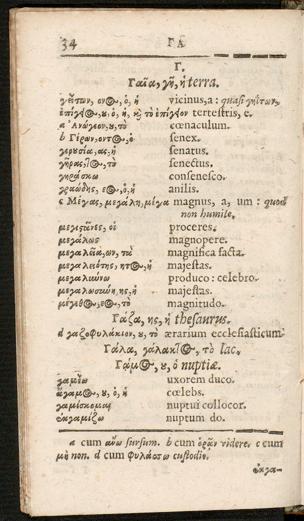 34 ΓΑ
Γ.
Γαῖα, γῆ, ἡ terra.
γείτων, ονος, ὁ, ἡ vicinus, a: quasi γήτων.
ἐπίγειος, ου, ὁ, ἡ, καὶ τὸ ἐπίγειον terrestris, e.
a Ἀνώγεον, ου, τὸ cœnaculum.
b Γέρων, οντος, ὁ senex.
γερουσία, ας, ἡ senatus.
γῆρας, τος, τὸ senectus.
γηράσκω consenesco.
γραώδης, εος, ὁ, ἡ anilis.
c Μέγας, μεγάλη, μέγα magnus, a, um: quod
non humile.
μεγιστᾶνες, οἱ proceres.
μεγάλως magnopere.
μεγαλεῖα, ων, τὰ magnifica facta.
μεγαλειότης, ητος, ἡ majestas.
μεγαλύνω produco: celebro.
μεγαλωσύνη, ης, ἡ majestas.
μέγεθος, εος, τὸ magnitudo.
Γάζα, ης, ἡ thesaurus.
d γαζοφυλάκιον, ου, τὸ ærarium ecclesiasticum.
Γάλα, γάλακτος, τὸ lac.
Γάμος, ου, ὁ nuptiæ.
γαμέω uxorem duco.
ἄγαμος, ου, ὁ, ἡ cœlebs.
γαμίσκομαι nuptui collocor.
ἐκγαμίζω nuptum do.
a cum ἄνω sursum. b cum ὁρᾶν videre. c cum
μὴ non. d cum φυλάττω custodio.
ἐκγα-